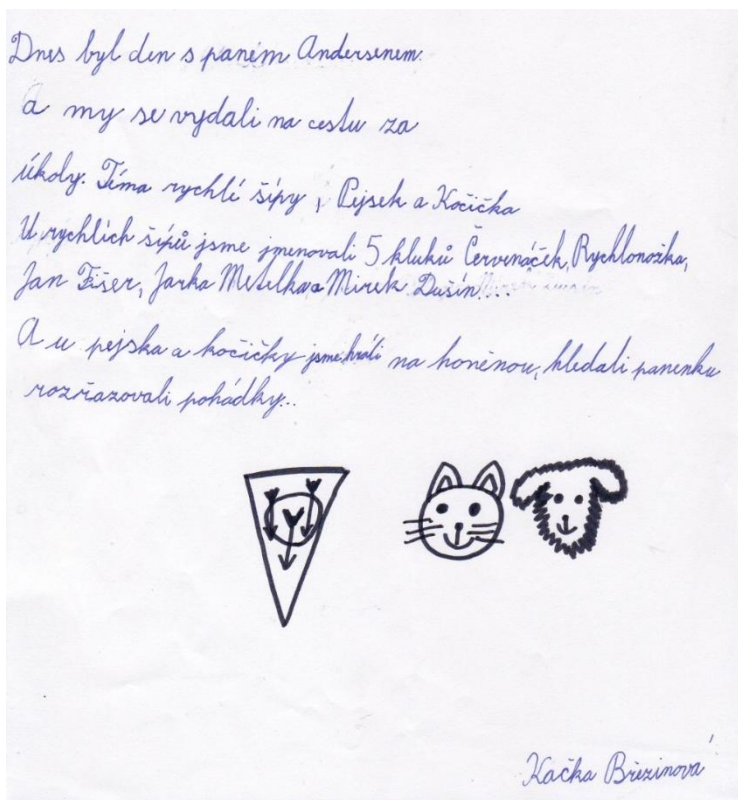 Dnes byl den s paném Andersenem.
a my se vydali na cestu za
úkoly. Téma rychlé šípy, Pejsek a Kočička
U rychlích šípů jsme jmenovali 5 kluků Červenáček, Rychlonožka,
Jan Fišer, Jarka Metelka a Mirek Dušín...
A u pejska a kočičky jsme hráli na honěnou, hledali panenku
rozřazovali pohádky..
Kačka Březinová